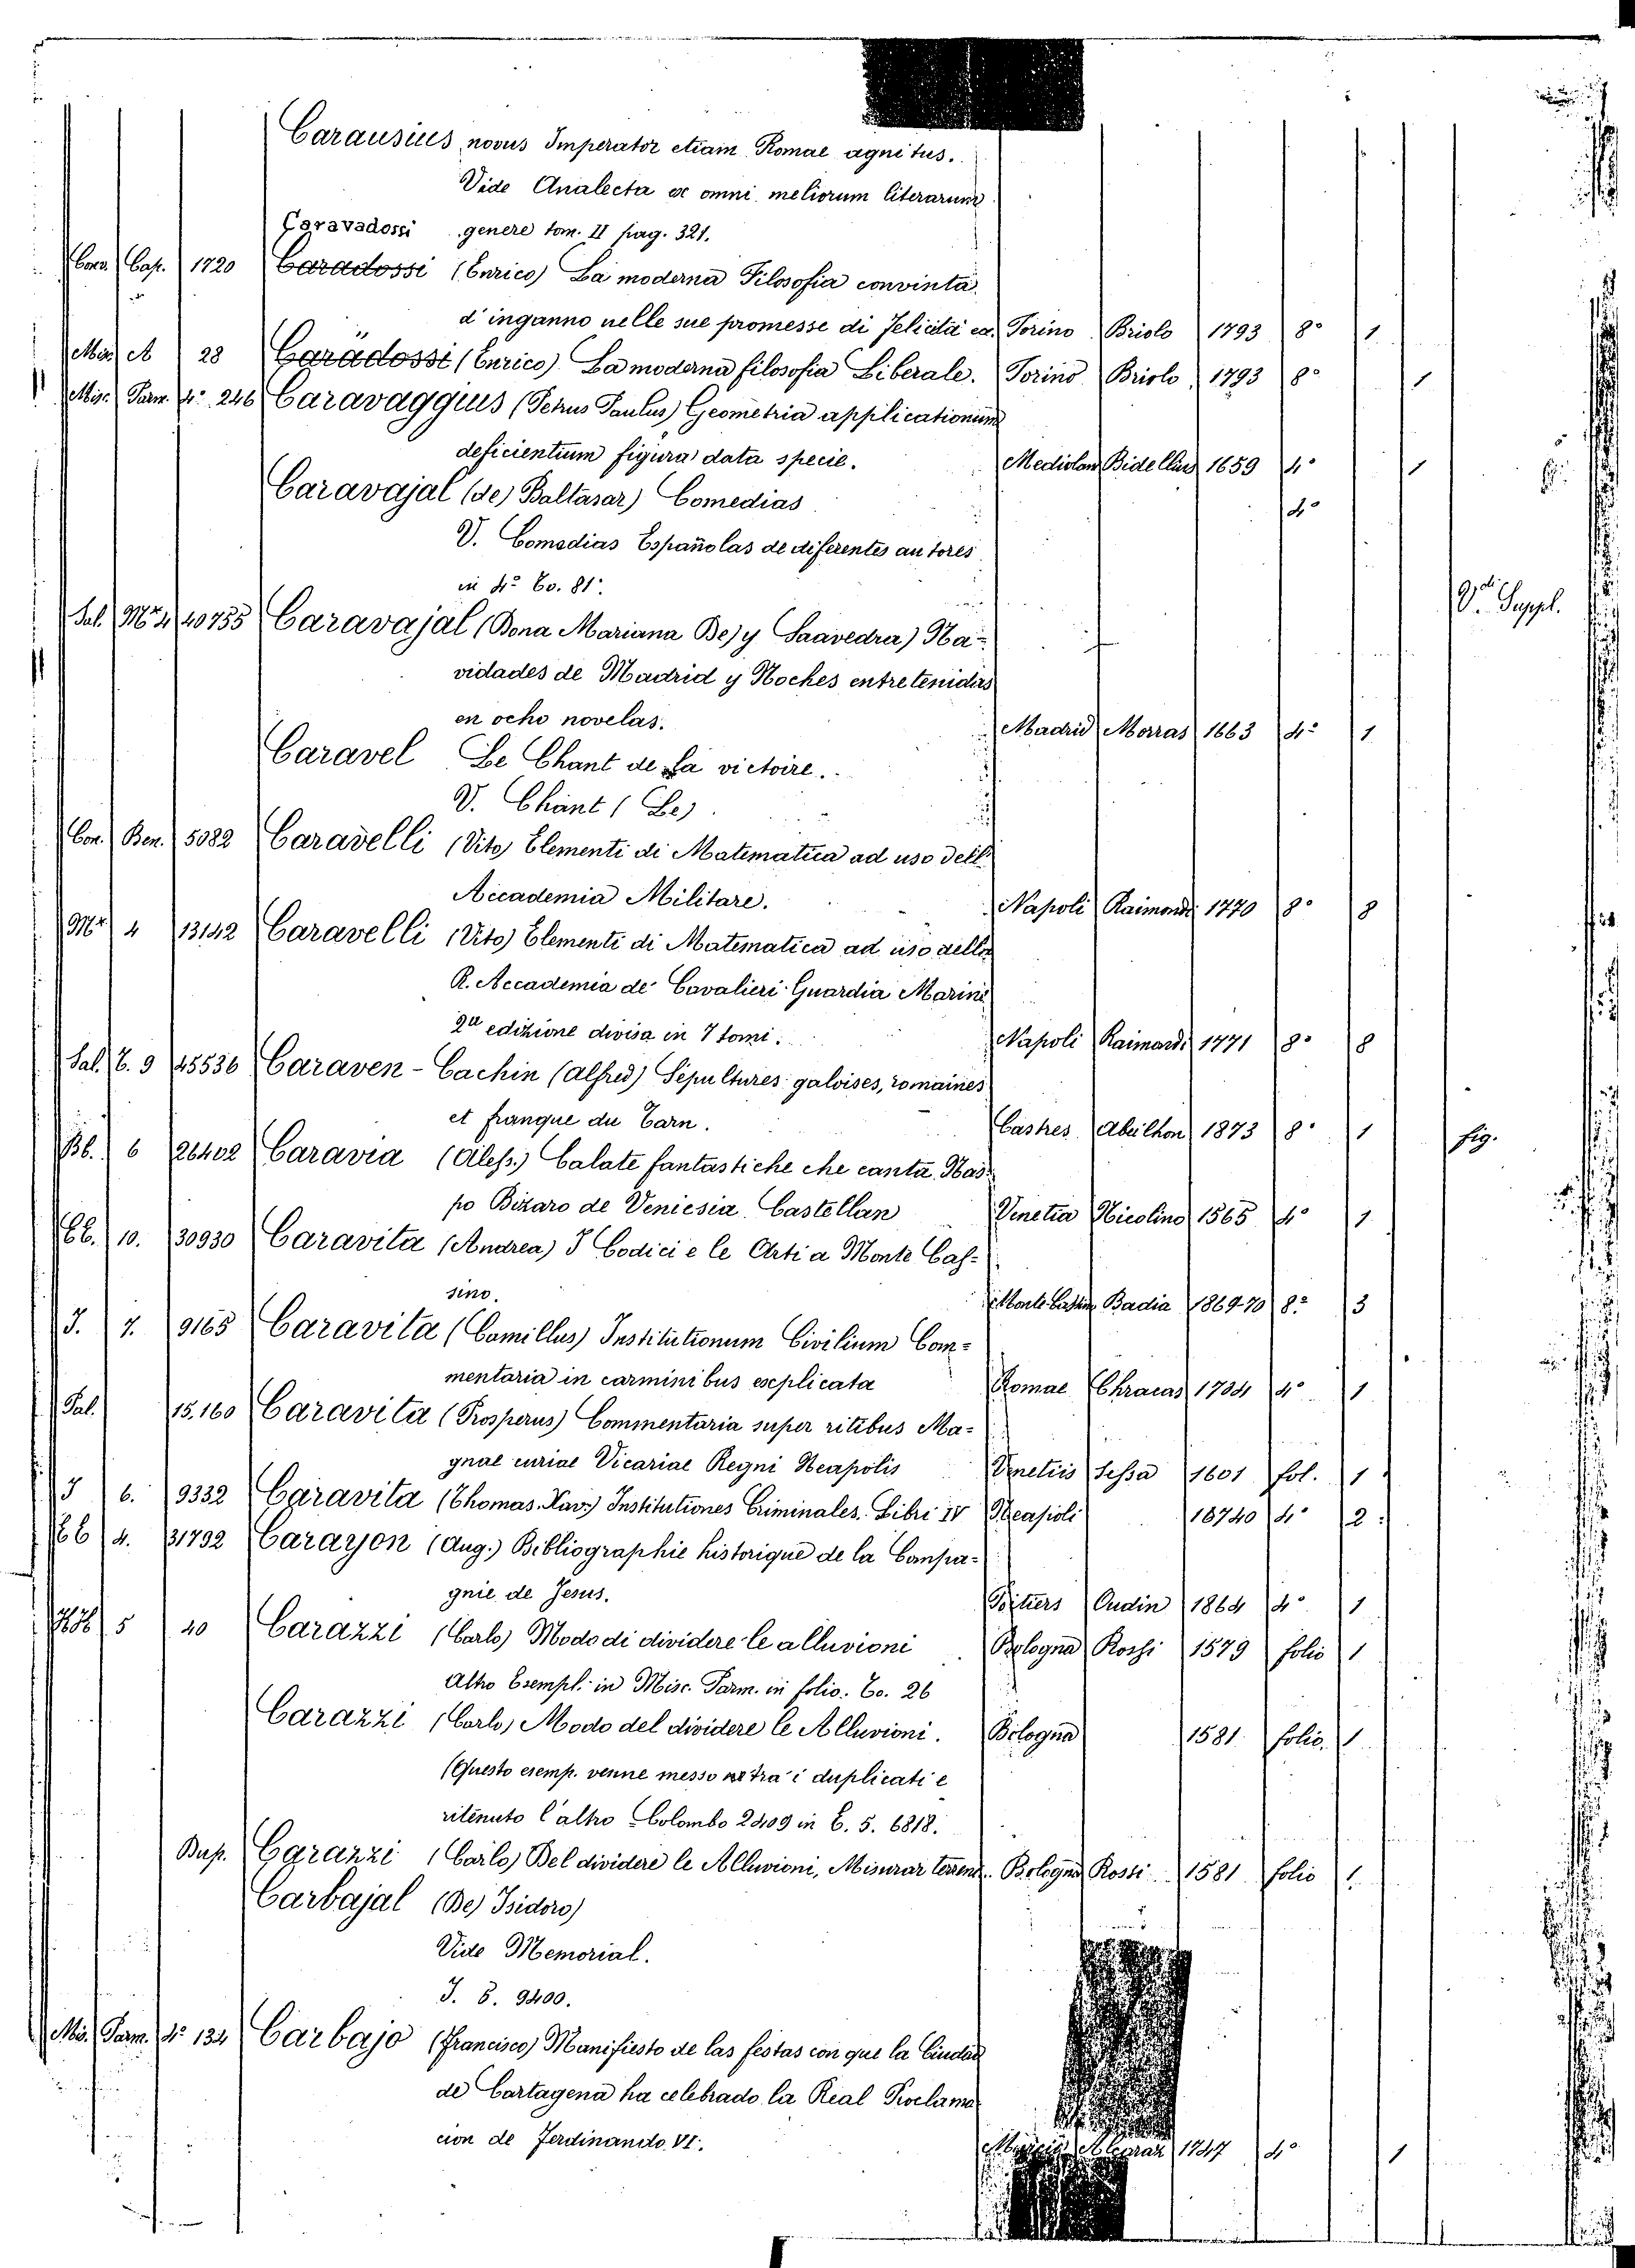 Carausius novus Imperator etiam Romae agnitus.
Vide Analecta ex omni meliorum literarum
Caravadossi genere tom. II pag. 321.
Conv. Cap. 1720 Caradossi (Enrico) La moderna Filosofia convinta
d'inganno nelle sue promesse di felicità ec. Torino Briolo 1793 8° 1
Misc. A 28 Caradossi (Enrico) La moderna filosofia Liberale. Torino Briolo 1793 8° 1
Misc. Parm. 4° 246 Caravaggius (Petrus Paulus) Geometria applicationum
deficientium figura data specie. Mediolan Bidellius 1659 4° 1
Caravajal (de) Baltasar) Comedias 4°
V. Comedias Españolas de diferentes autores
in 4° Co. 81.
V.di Suppl.
Sal. Mr 4 40755 Caravajal (Dona Mariana De) y Saavedra) Na=
vidades de Madrid y Noches entretenidas
en ocho novelas. Madrid Morras 1663 4° 1
Caravel Le Chant de la victoire.
V. Chant (Le)
Con. Ben. 5082 Caravelli (Vito) Elementi di Matematica ad uso dell'
Accademia Militare. Napoli Raimondi 1770 8° 8
Mr 4 13142 Caravelli (Vito) Elementi di Matematica ad uso della
R. Accademia de' Cavalieri Guardia Marine
2a edizione divisa in 7 tomi. Napoli Raimondi 1771 8° 8
Sal. C. 9 45536 Caraven-Cachin (Alfred) Sépultures galoises, romaines
et franque du Tarn. Castres Abeilhon 1873 8° 1 fig.
Bb. 6 26402 Caravia (Aless.) Calate fantastiche che canta Nas=
po Bizaro de Veniesia Castellan Venetia Nicolino 1565 4° 1
Bb. 10. 30930 Caravita (Andrea) I Codici e le Arti a Monte Cas=
sino. Monte-Cassino Badia 1869-70 8° 3
I. 7. 9165 Caravita (Camillus) Institutionum Civilium Com=
mentaria in carminibus explicata Romae Chracas 1734 4° 1
Sal. 15.160 Caravita (Prosperus) Commentaria super ritibus Ma=
gnae curiae Vicariae Regni Neapolis Venetiis Sessa 1601 fol. 1
I 6. 9332 Caravita (Thomas. Xav.) Institutiones Criminales. Libri IV Neapoli 18740 4° 2
Bb 4. 31792 Carayon (Aug.) Bibliographie historique de la Compa=
gnie de Jesus. Poitiers Oudin 1864 4° 1
5 40 Carazzi (Carlo) Modo di dividere le alluvioni Bologna Rossi 1579 folio 1
Altro Esempl. in Misc. Parm. in folio. Co. 26
Carazzi (Carlo) Modo del dividere le Alluvioni. Bologna 1581 folio. 1
(Questo esemp. venne messo tra i duplicati e
ritenuto l'altro Colombo 2409 in C. 5. 6818.
Dup. Carazzi (Carlo) Del dividere le Alluvioni, Misurar terreni. Bologna Rossi 1581 folio 1.
Carbajal (De) Isidoro)
Vide Memorial.
I. 8. 9400.
Mis. Parm. 4° 134 Carbajo (Francisco) Manifiesto de las festas con que la Ciudad
de Cartagena ha celebrado la Real Proclama
cion de Ferdinando VI. Alcaraz 1747 4° 1